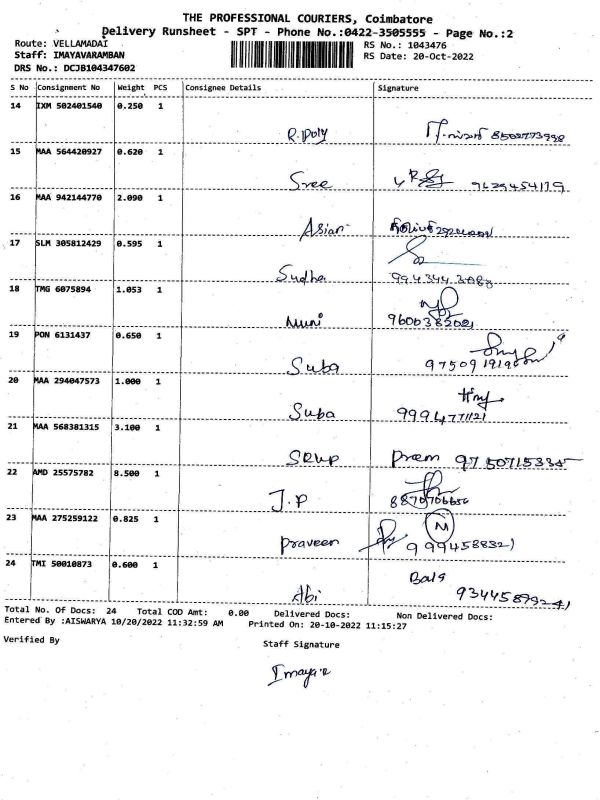 THE PROFESSIONAL COURIERS, Coimbatore
Delivery Runsheet - SPT - Phone No.:0422-3505555 - Page No.:2
Route: VELLAMADAI
RS No.: 1043476
Staff: IMAYAVARAMBAN
RS Date: 20-Oct-2022
DRS No.: DCJB104347602
S No Consignment No Weight PCS Consignee Details Signature
14 IXM 502401540 0.250 1
R.Poly
15 MAA 564420927 0.620 1
Sree 9629454119
16 MAA 942144770 2.090 1
Asian
17 SLM 305812429 0.595 1
Sudha 994344 3083
18 TMG 6075894 1.053 1
Muni 9600382021
19 PON 6131437 0.650 1
Suba
20 MAA 294047573 1.000 1
Suba 9994771121
21 MAA 568381315 3.100 1
SRUP Prem 9750715335
22 AMD 25575782 8.500 1
J.P
23 MAA 275259122 0.825 1
Praveen 9994588321
24 TMI 50010873 0.600 1
Bala
Abi 93445899241
Total No. Of Docs: 24 Total COD Amt: 0.00 Delivered Docs: Non Delivered Docs:
Entered By :AISWARYA 10/20/2022 11:32:59 AM Printed On: 20-10-2022 11:15:27
Verified By
Staff Signature